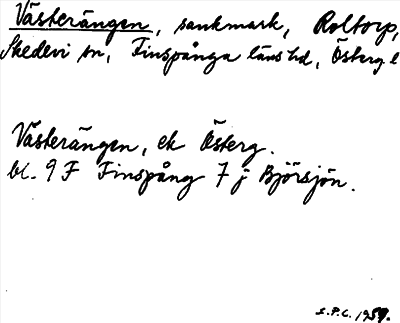 Västerängen, sankmark, Roltorp,
Skedevi sn, Finspånga läns hd, Österg l
Västerängen, ek Österg.
bl. 9 F Finspång 7 j Björsjön.
S.P.C. 1959.